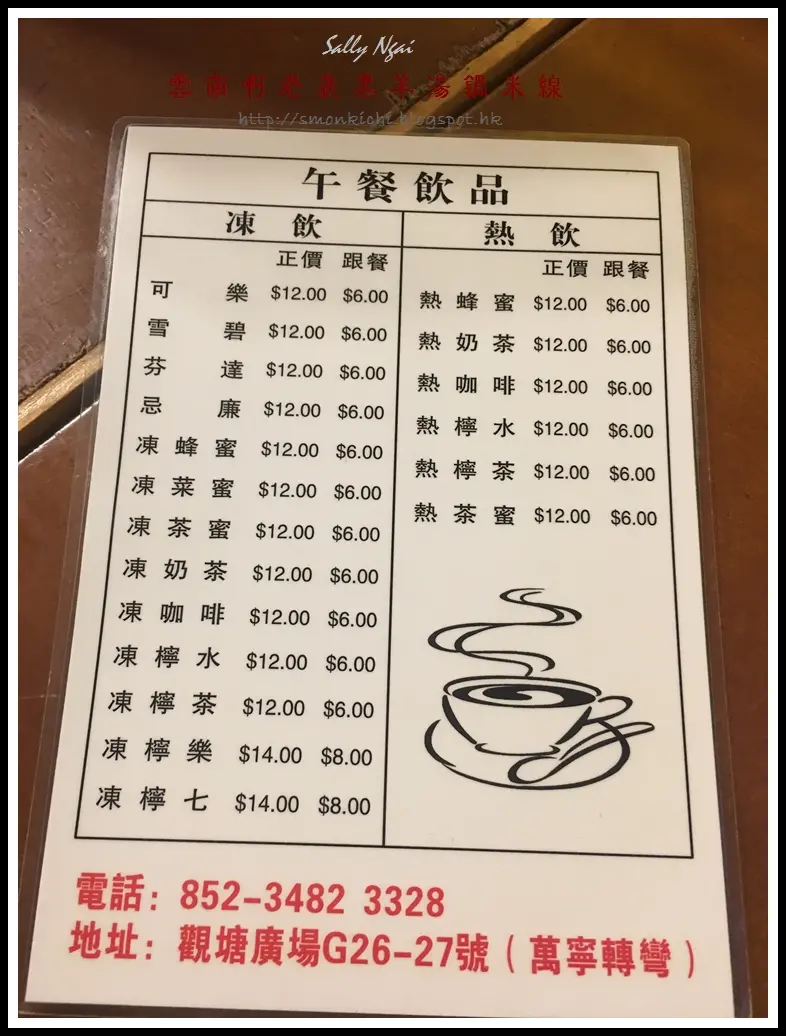 Sally Ngai
雲 羊湯鍋米線
http://smonkichi.blogspot.hk
午餐飲品
凍飲
正價 跟餐
可樂 $12.00 $6.00
雪碧 $12.00 $6.00
芬達 $12.00 $6.00
忌廉 $12.00 $6.00
凍蜂蜜 $12.00 $6.00
凍菜蜜 $12.00 $6.00
凍茶蜜 $12.00 $6.00
凍奶茶 $12.00 $6.00
凍咖啡 $12.00 $6.00
凍檸水 $12.00 $6.00
凍檸茶 $12.00 $6.00
凍檸樂 $14.00 $8.00
凍檸七 $14.00 $8.00
熱飲
正價 跟餐
熱蜂蜜 $12.00 $6.00
熱奶茶 $12.00 $6.00
熱咖啡 $12.00 $6.00
熱檸水 $12.00 $6.00
熱檸茶 $12.00 $6.00
熱茶蜜 $12.00 $6.00
電話：852-3482 3328
地址：觀塘廣場G26-27號（萬寧轉彎）